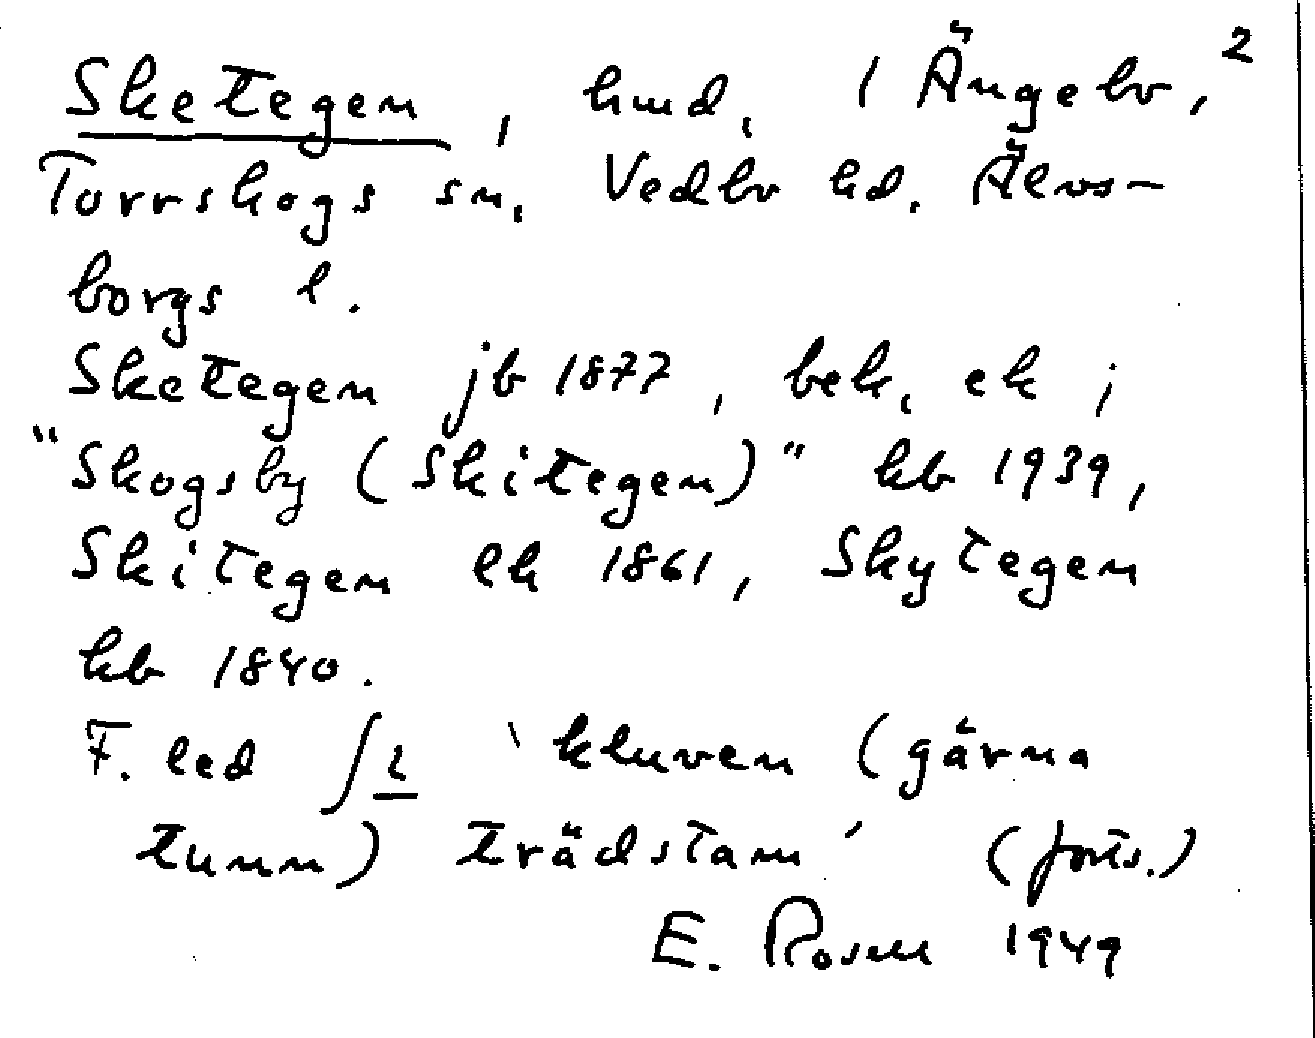 Sketegen, hmd, 1 Ängebo, 2
Torrskogs sn, Vedbo hd. Älvs-
borgs l.
Sketegen jb 1877, bek, ek;
"Skogsby (Skitegen)" kb 1939,
Skitegen ek 1861, Skytegen
kb 1840.
F. led ʃɩ 'kluven (gärna
tunn) trädstam' (forts.)
E. Rosell 1949